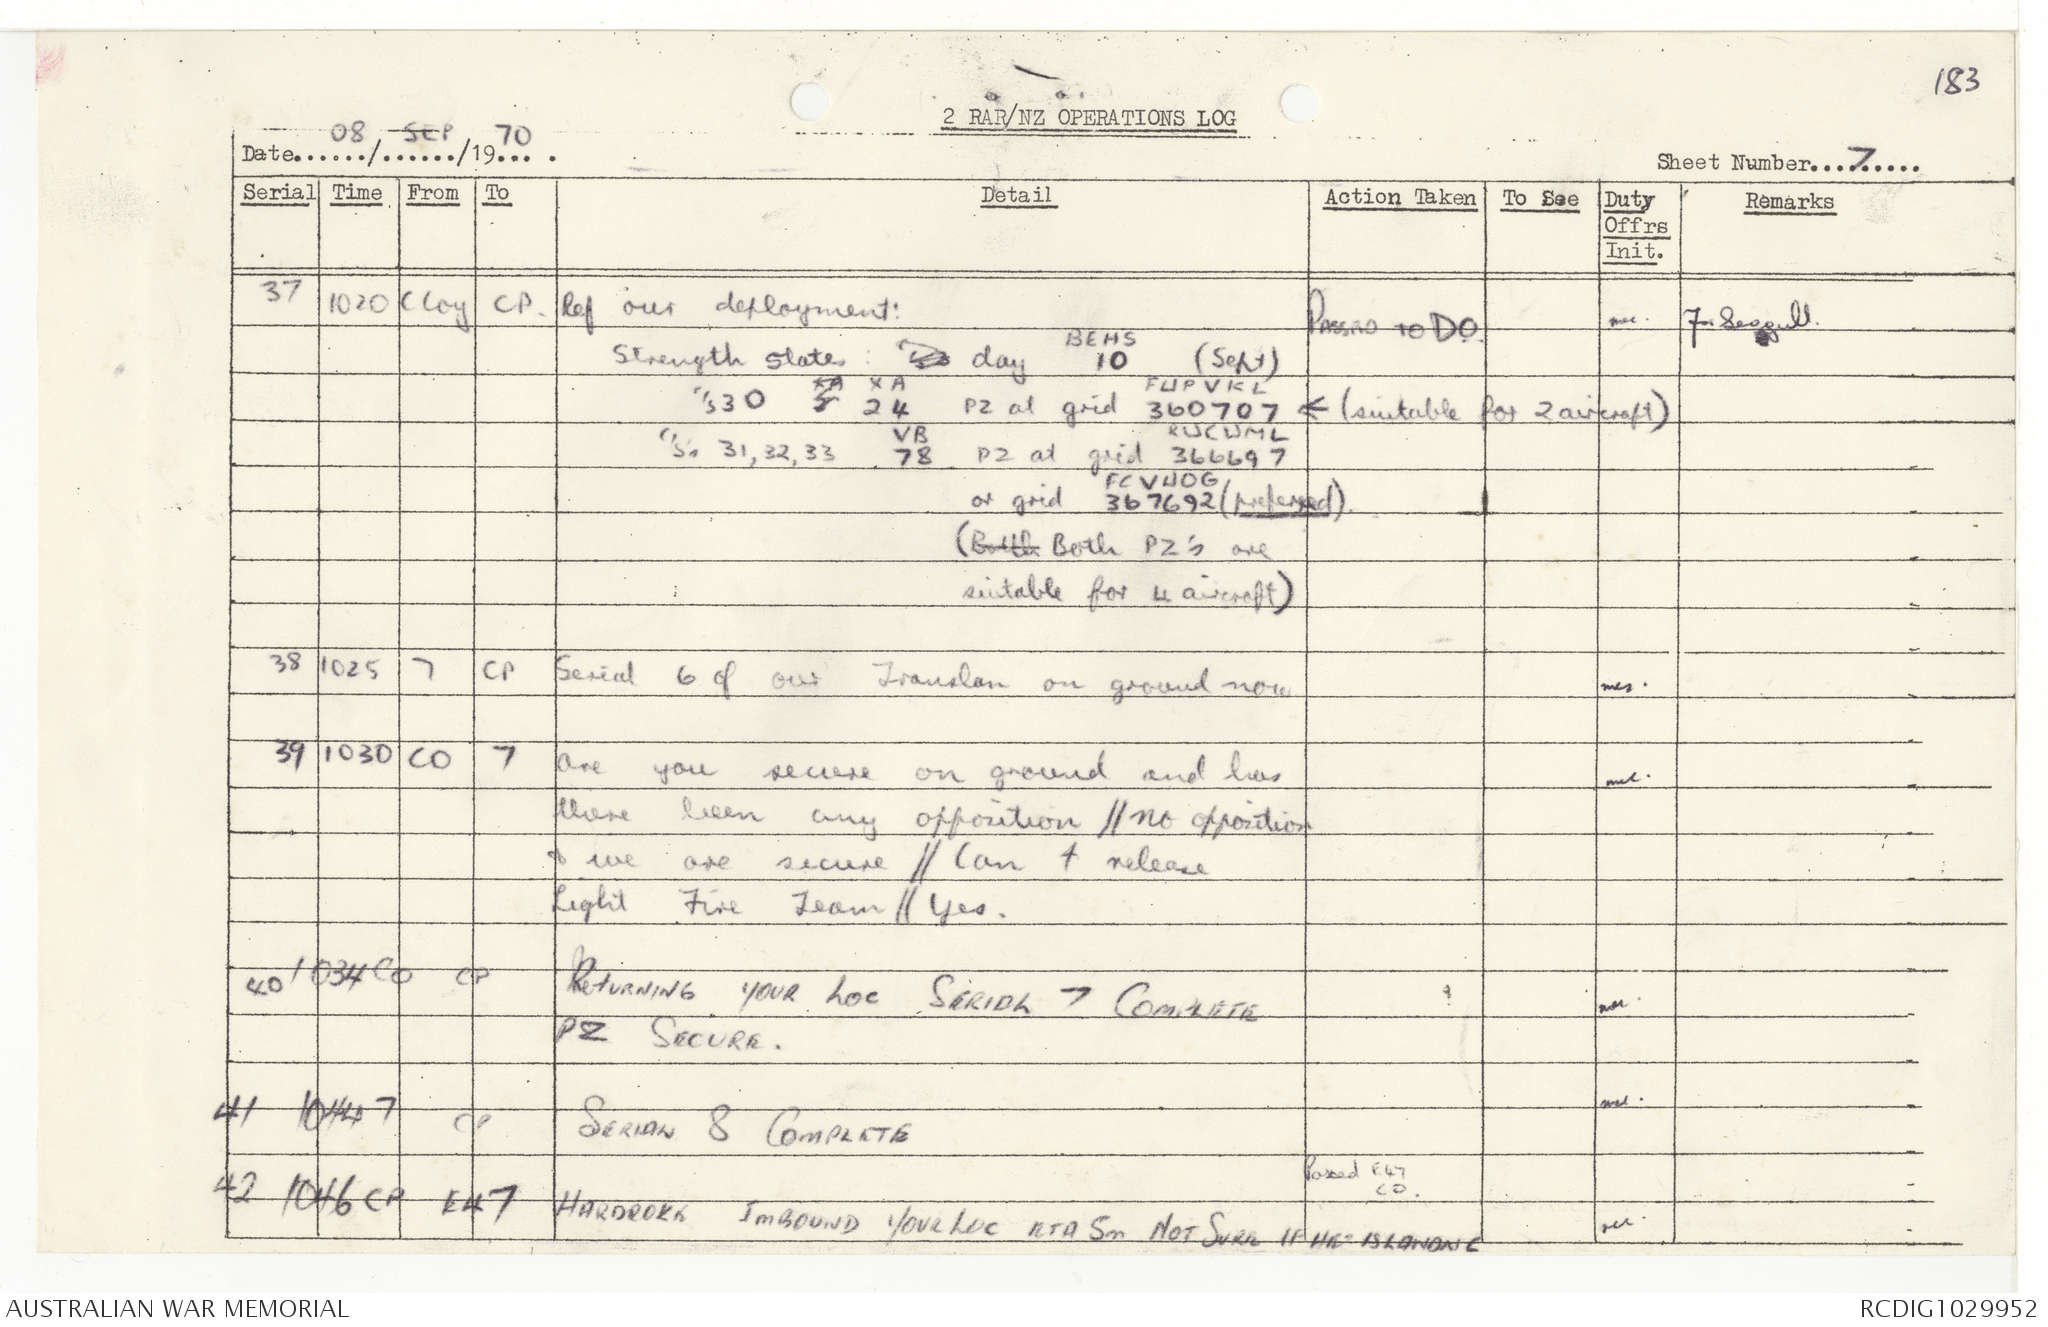 183
2 RAR/NZ OPERATIONS LOG
Date 08 / SEP / 19 70
Sheet Number 7
Serial Time From To Detail Action Taken To See Duty Offrs Init. Remarks
37 1020 C Coy CP. Ref our deployment: Passed to DO. For Seagull.
BEHS
Strength states: day 10 (Sept)
XA XA FUPVKL
C/s 30 24 PZ at grid 360707 ← (suitable for 2 aircraft)
VB RWCWML
C/S's 31, 32, 33 78 PZ at grid 366697
FCVWOG
or grid 367692 (preferred).
(Both PZ's are
suitable for 4 aircraft)
38 1025 7 CP Serial 6 of our Translan on ground now
39 1030 CO 7 Are you secure on ground and has
there been any opposition // No opposition
& we are secure // Can I release
Light Fire Team // Yes.
40 1034 CO CP RETURNING YOUR LOC SERIAL 7 COMPLETE
PZ SECURE.
41 1044 7 CP SERIAL 8 COMPLETE
Passed E47
CO.
42 1046 CP E47 HARDROKK IMBOUND YOUR LOC ETA 5m NOT SURE IF HE IS LANDING
AUSTRALIAN WAR MEMORIAL
RCDIG1029952